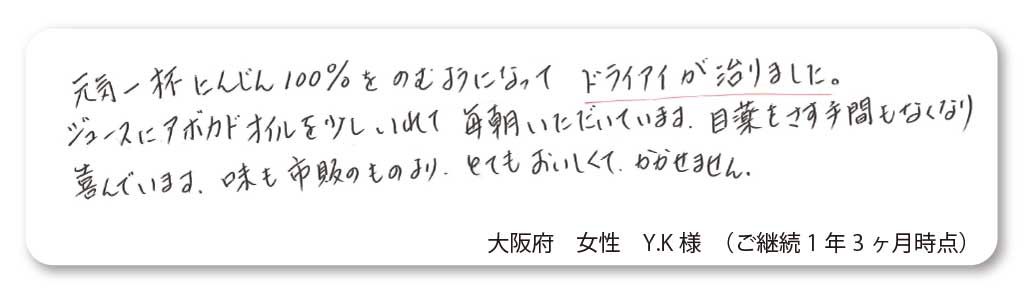 元気一杯にんじん100%をのむようになって ドライアイが治りました。
ジュースにアボカドオイルを少しいれて 毎朝いただいています。目薬をさす手間もなくなり
喜んでいます。味も市販のものより、とてもおいしくて、かかせません。
大阪府 女性 Y.K様 (ご継続1年3ヶ月時点)